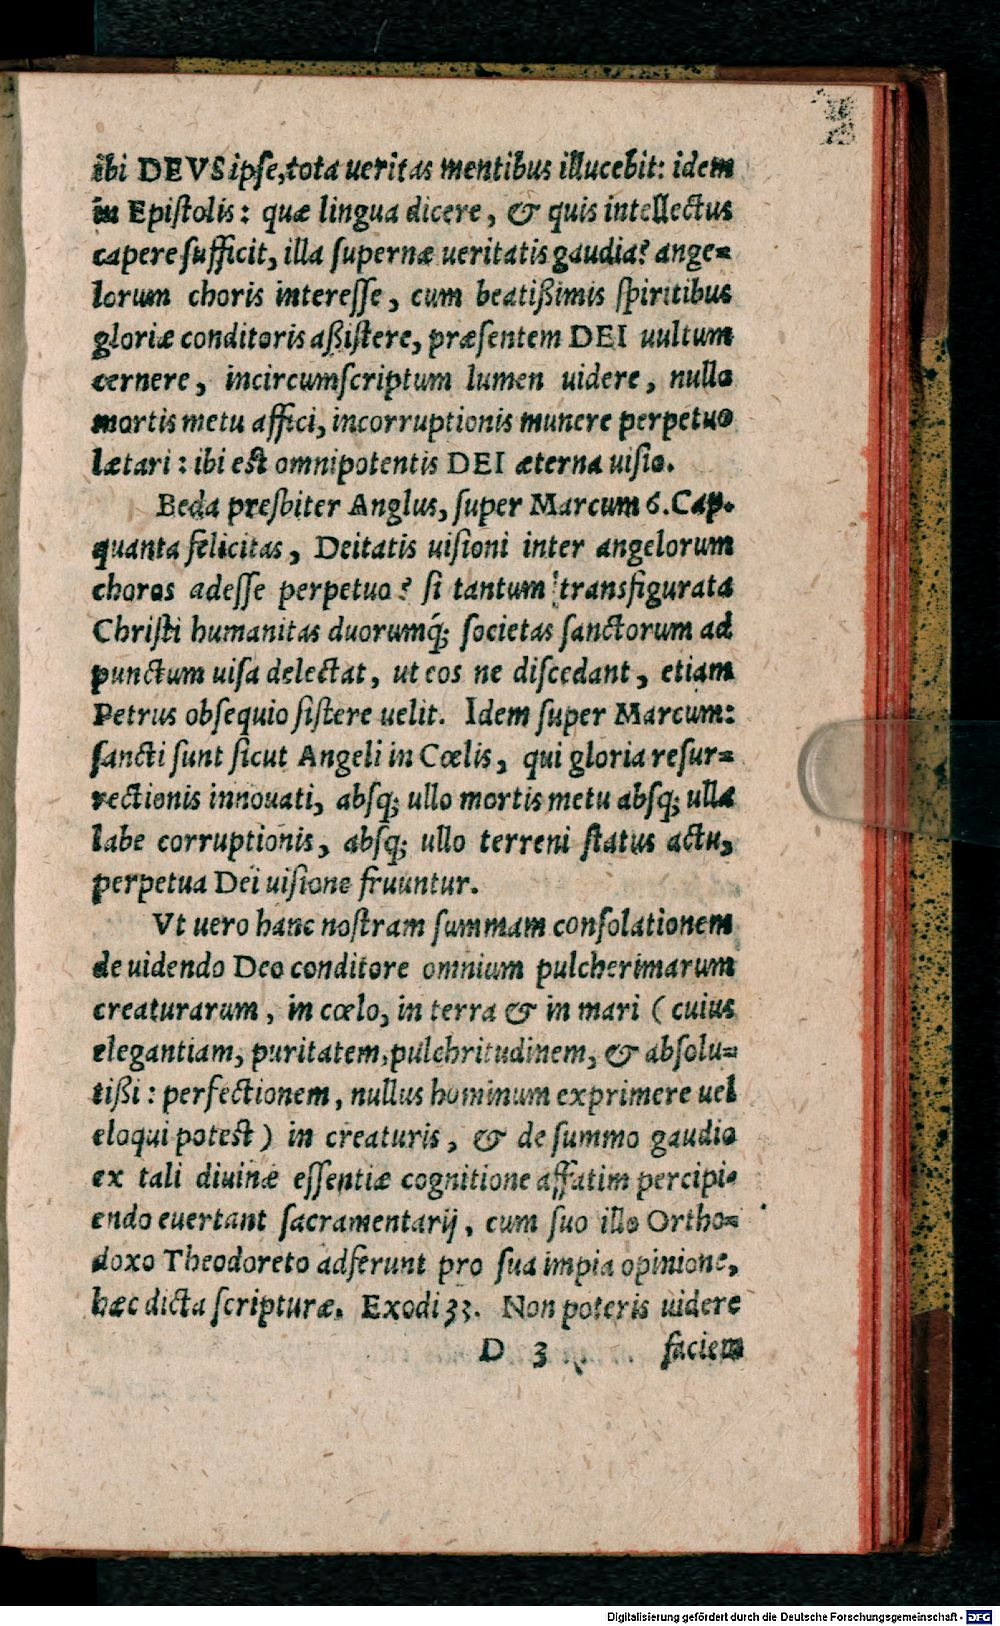 ibi DEVS ipſe, tota ueritas mentibus illucebit: idem
in Epiſtolis: quæ lingua dicere, & quis intellectus
capere ſufficit, illa ſupernæ ueritatis gaudia? ange=
lorum choris intereſſe, cum beatißimis ſpiritibus
gloriæ conditoris aßiſtere, præſentem DEI uultum
cernere, incircumſcriptum lumen uidere, nullo
mortis metu affici, incorruptionis munere perpetuo
lætari: ibi est omnipotentis DEI æterna uiſio.
Beda presbiter Anglus, ſuper Marcum 6. Cap.
quanta felicitas, Deitatis uiſioni inter angelorum
choros adeſſe perpetuo? ſi tantum transfigurata
Chriſti humanitas duorumq́; ſocietas ſanctorum ad
punctum uiſa delectat, ut eos ne diſcedant, etiam
Petrus obſequio ſiſtere uelit. Idem ſuper Marcum:
ſancti ſunt ſicut Angeli in Cœlis, qui gloria reſur=
rectionis innouati, abſq; ullo mortis metu abſq; ulla
labe corruptionis, abſq; ullo terreni ſtatus actu,
perpetua Dei uiſione fruuntur.
Vt uero hanc noſtram ſummam conſolationem
de uidendo Deo conditore omnium pulcherimarum
creaturarum, in cœlo, in terra & in mari (cuius
elegantiam, puritatem, pulchritudinem, & abſolu=
tißi: perfectionem, nullus hominum exprimere uel
eloqui potest) in creaturis, & de ſummo gaudio
ex tali diuinæ eſſentiæ cognitione affatim percipi=
endo euertant ſacramentarij, cum ſuo illo Ortho=
doxo Theodoreto adferunt pro ſua impia opinione,
hæc dicta ſcripturæ. Exodi 33. Non poteris uidere
D 3 faciem
Digitalisierung gefördert durch die Deutsche Forschungsgemeinschaft - DFG